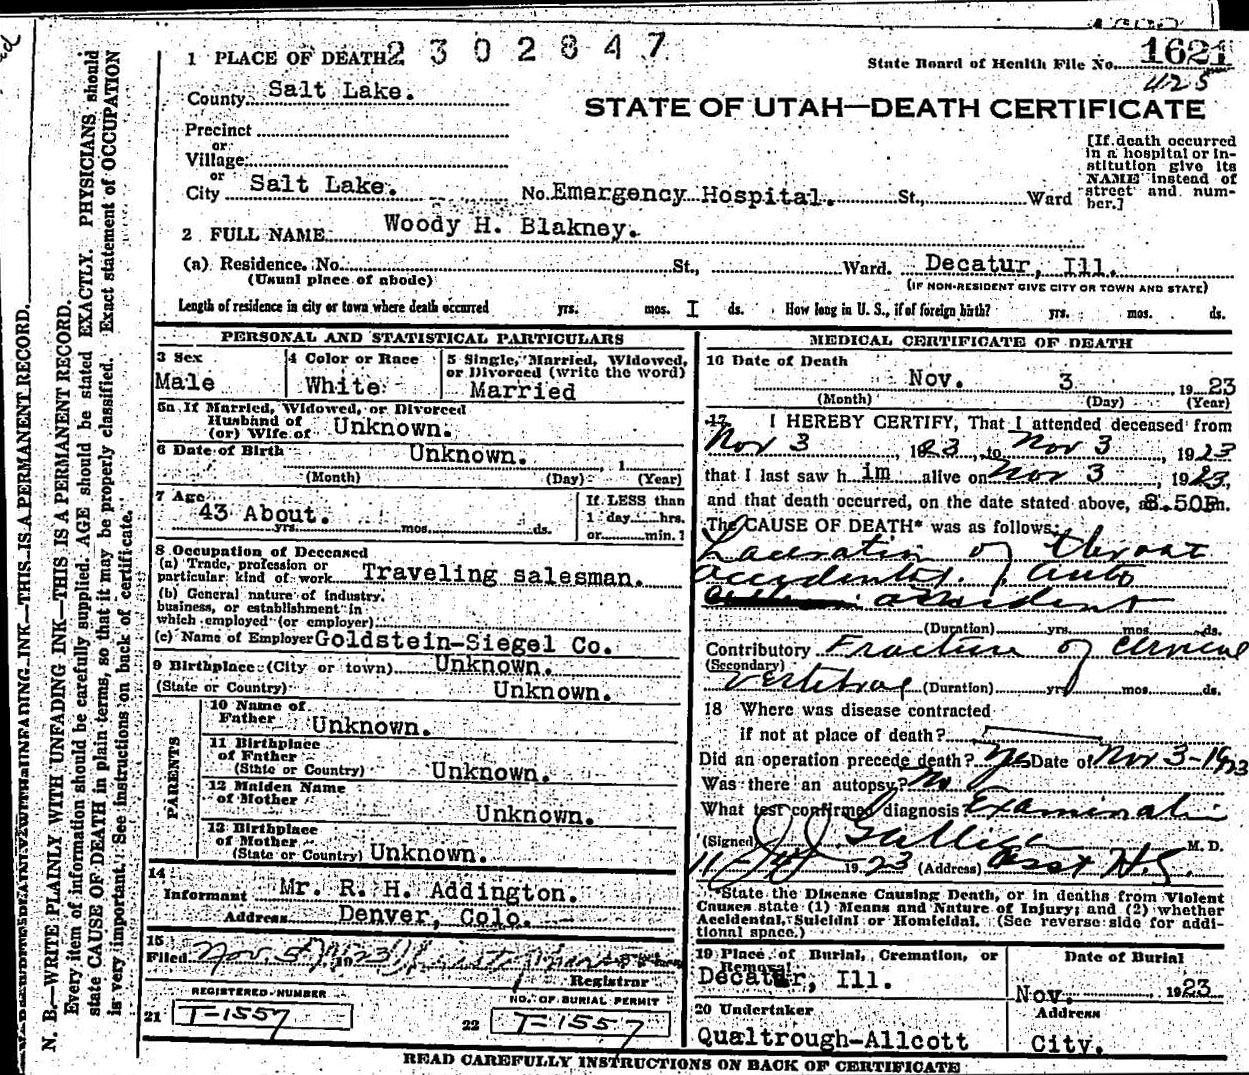 2302847
1 PLACE OF DEATH
State Board of Health File No. 1621
425
County Salt Lake.
STATE OF UTAH—DEATH CERTIFICATE
Precinct
or
Village
or
City Salt Lake. No. Emergency Hospital. St., Ward
[If death occurred
in a hospital or in-
stitution give its
NAME instead of
street and num-
ber.]
2 FULL NAME Woody H. Blakney.
(a) Residence. No. St., Ward. Decatur, Ill.
(Usual place of abode) (IF NON-RESIDENT GIVE CITY OR TOWN AND STATE)
Length of residence in city or town where death occurred yrs. mos. I ds. How long in U. S., if of foreign birth? yrs. mos. ds.
PERSONAL AND STATISTICAL PARTICULARS
3 Sex
Male
4 Color or Race
White
5 Single, Married, Widowed,
or Divorced (write the word)
Married
5a If Married, Widowed, or Divorced
Husband of
(or) Wife of Unknown.
6 Date of Birth Unknown. , 1
(Month) (Day) (Year)
7 Age
43 About.
yrs. mos. ds.
If LESS than
1 day hrs.
or min.?
8 Occupation of Deceased
(a) Trade, profession or
particular kind of work Traveling salesman.
(b) General nature of industry,
business, or establishment in
which employed (or employer)
(c) Name of Employer Goldstein-Siegel Co.
9 Birthplace (City or town) Unknown.
(State or Country) Unknown.
PARENTS
10 Name of
Father Unknown.
11 Birthplace
of Father
(State or Country) Unknown.
12 Maiden Name
of Mother Unknown.
13 Birthplace
of Mother
(State or Country) Unknown.
14
Informant Mr. R. H. Addington.
Address Denver, Colo.
15
Filed Nov. 5 1923
Registrar
REGISTERED NUMBER
21 T-1557
NO. OF BURIAL PERMIT
22 T-1557
MEDICAL CERTIFICATE OF DEATH
16 Date of Death
Nov. 3 , 1923
(Month) (Day) (Year)
17 I HEREBY CERTIFY, That I attended deceased from
Nov 3 , 1923 , to Nov 3 , 1923
that I last saw him alive on Nov 3 , 1923,
and that death occurred, on the date stated above, at 8.50P m.
The CAUSE OF DEATH* was as follows:
Laceration of throat
accidental. auto
accident
(Duration) yrs. mos. ds.
Contributory Fracture of cervical
(Secondary)
vertebrae (Duration) yrs. mos. ds.
18 Where was disease contracted
if not at place of death?
Did an operation precede death? Yes Date of Nov 3-1923
Was there an autopsy? No
What test confirmed diagnosis Examination
(Signed) J J Galligan M. D.
1923 (Address) Asst H.S.
*State the Disease Causing Death, or in deaths from Violent
Causes state (1) Means and Nature of Injury; and (2) whether
Accidental, Suicidal or Homicidal. (See reverse side for addi-
tional space.)
19 Place of Burial, Cremation, or
Removal
Decatur, Ill.
Date of Burial
Nov. 1923
20 Undertaker
Qualtrough-Allcott
Address
City.
READ CAREFULLY INSTRUCTIONS ON BACK OF CERTIFICATE
N. B.—WRITE PLAINLY WITH UNFADING INK—THIS IS A PERMANENT RECORD.
Every item of information should be carefully supplied. AGE should be stated EXACTLY. PHYSICIANS should
state CAUSE OF DEATH in plain terms, so that it may be properly classified. Exact statement of OCCUPATION
is very important. See instructions on back of certificate.